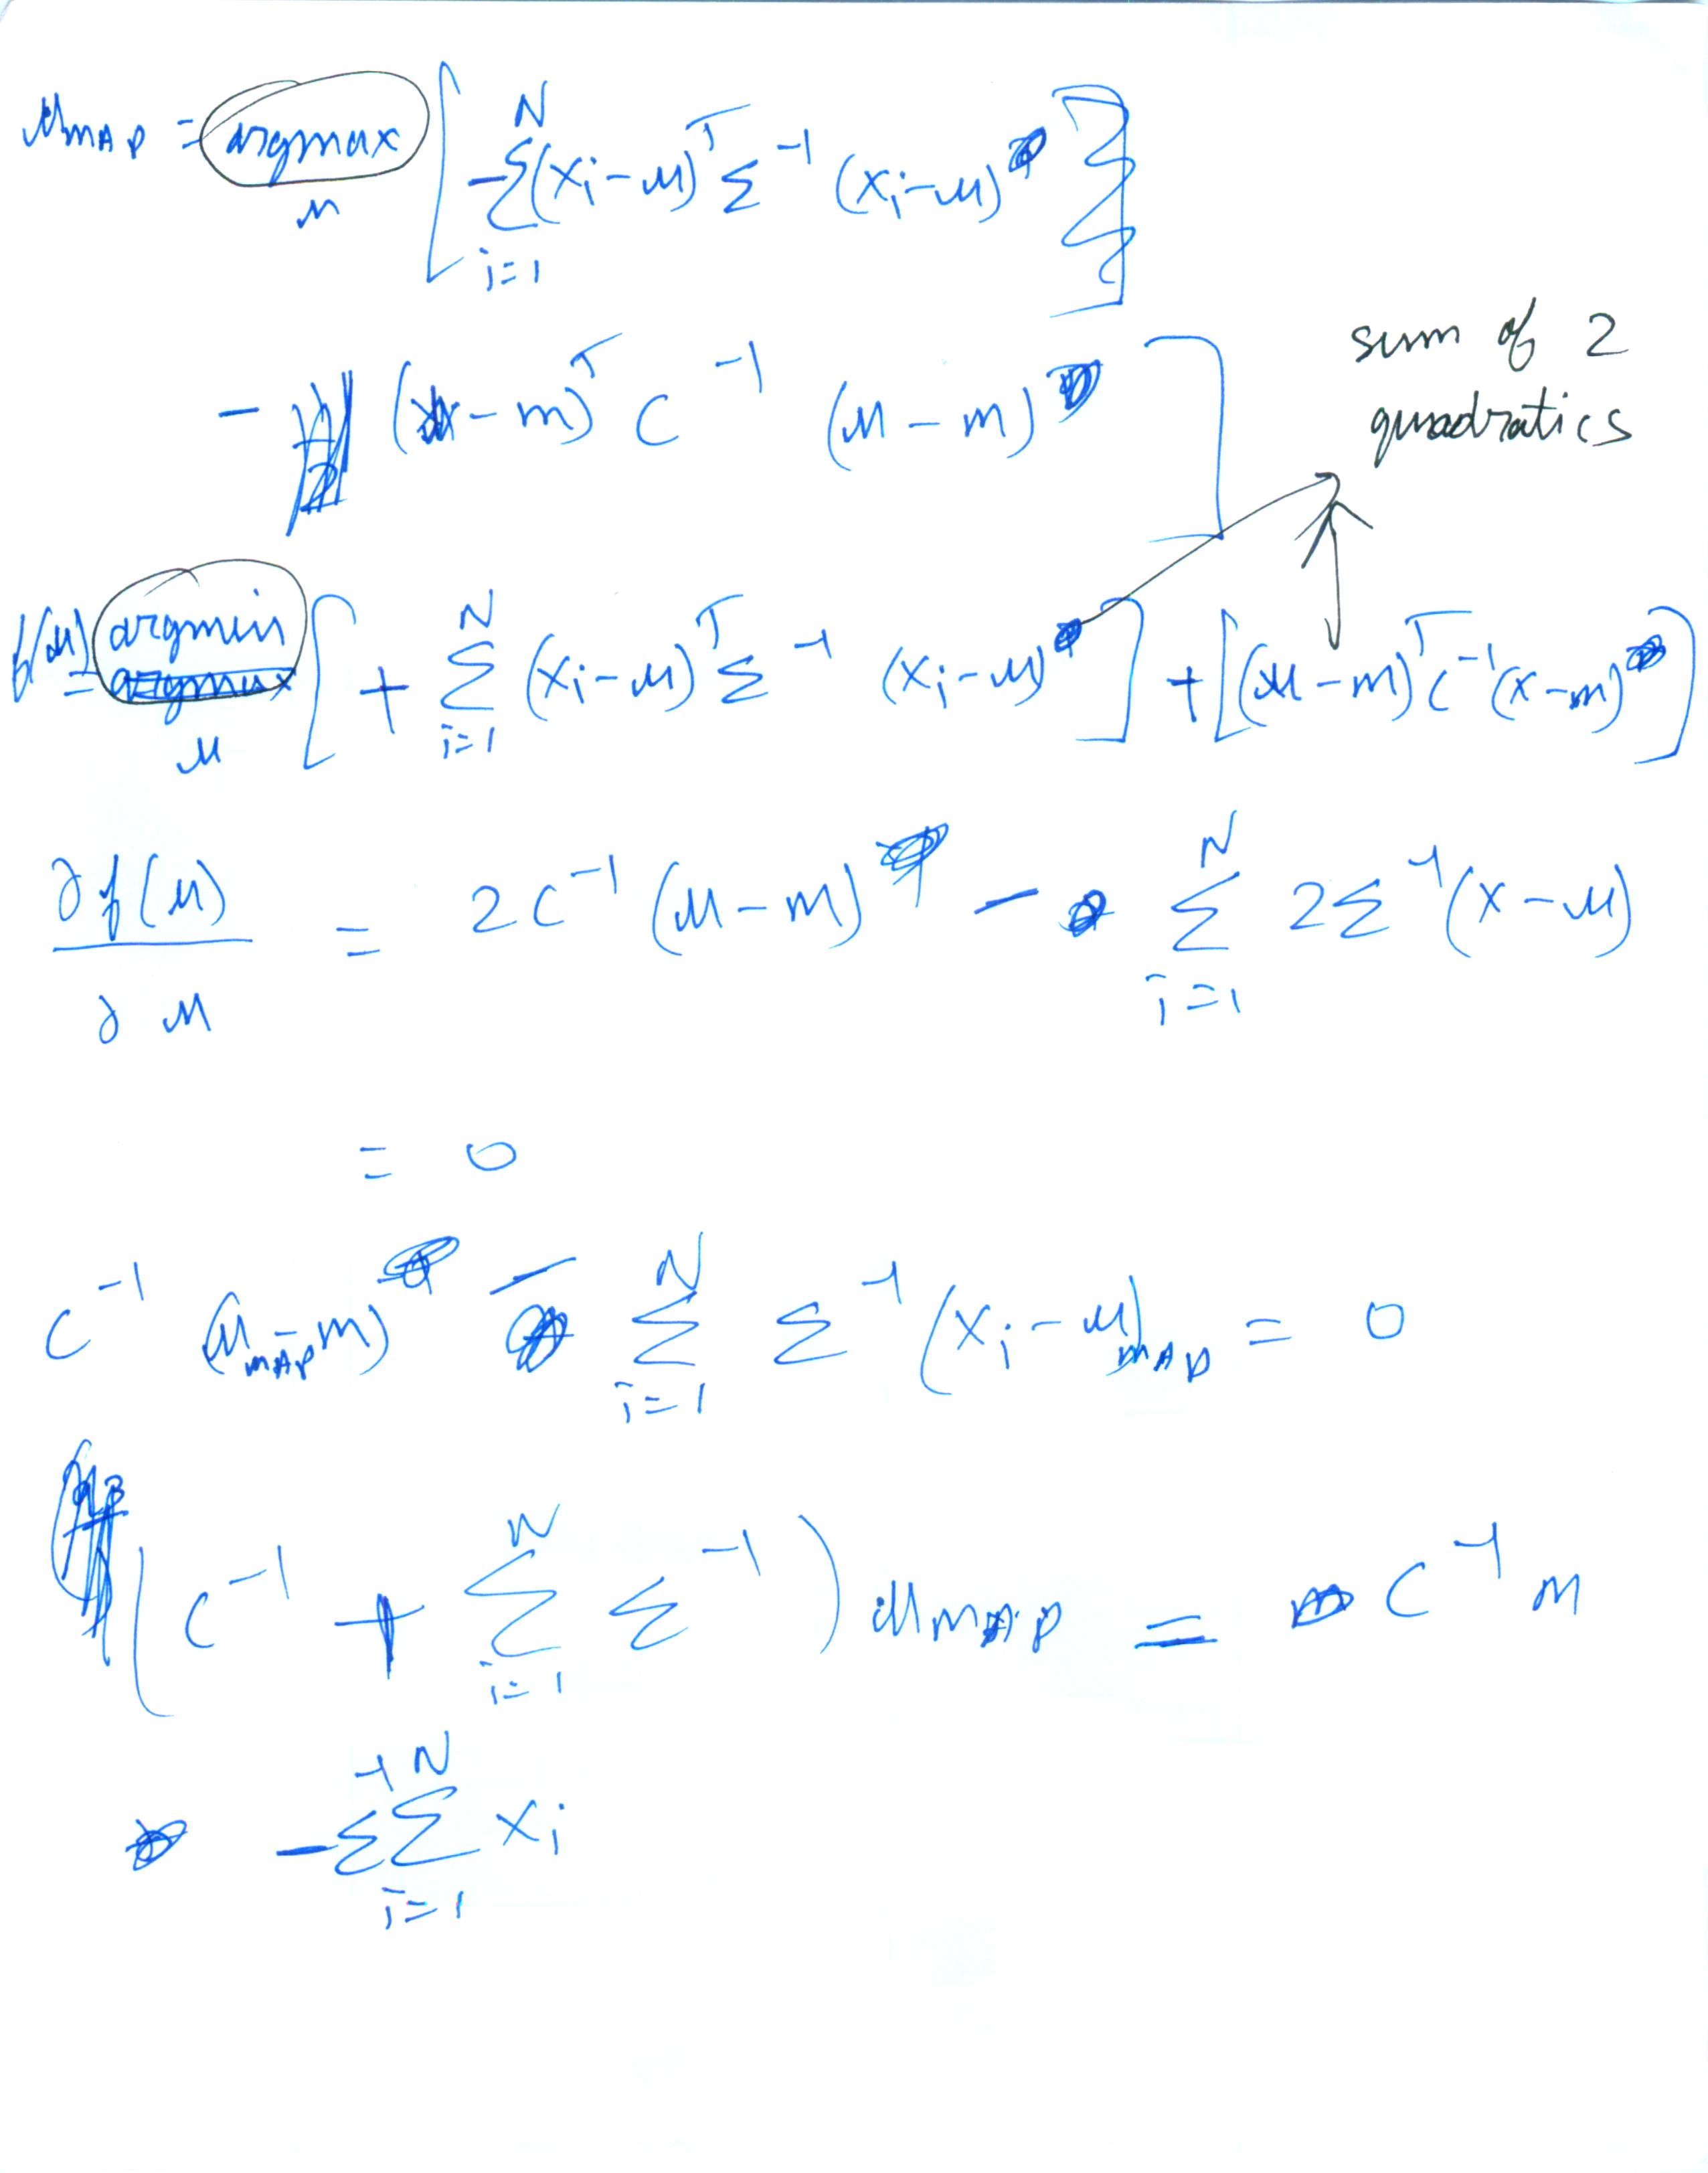 μ_MAP = argmax_μ [ -∑_{i=1}^{N} (x_i - μ)^T Σ^{-1} (x_i - μ) ]
- (μ - m)^T C^{-1} (μ - m) ]
sum of 2
quadratics
f(μ) = argmin_μ [ + ∑_{i=1}^{N} (x_i - μ)^T Σ^{-1} (x_i - μ) ] + [(μ - m)^T C^{-1} (x - m) ]
∂f(μ)/∂μ = 2C^{-1} (μ - m) - ∑_{i=1}^{N} 2Σ^{-1} (x - μ)
= 0
C^{-1} (μ_MAP - m) - ∑_{i=1}^{N} Σ^{-1} (x_i - μ)_MAP = 0
( C^{-1} + ∑_{i=1}^{N} Σ^{-1} ) μ_MAP = C^{-1} m
- Σ^{-1} ∑_{i=1}^{N} x_i